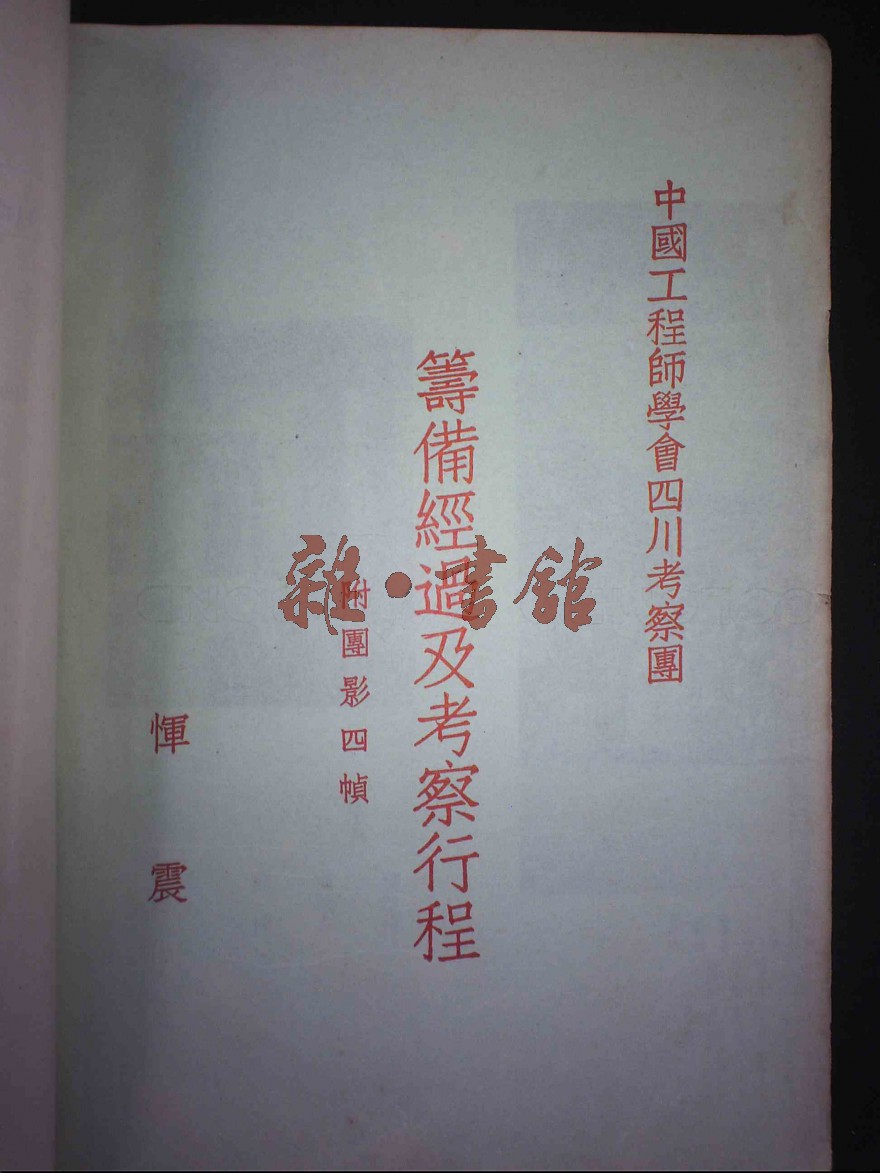 中國工程師學會四川考察團
籌備經過及考察行程
附團影四幀
惲震
雜·書館